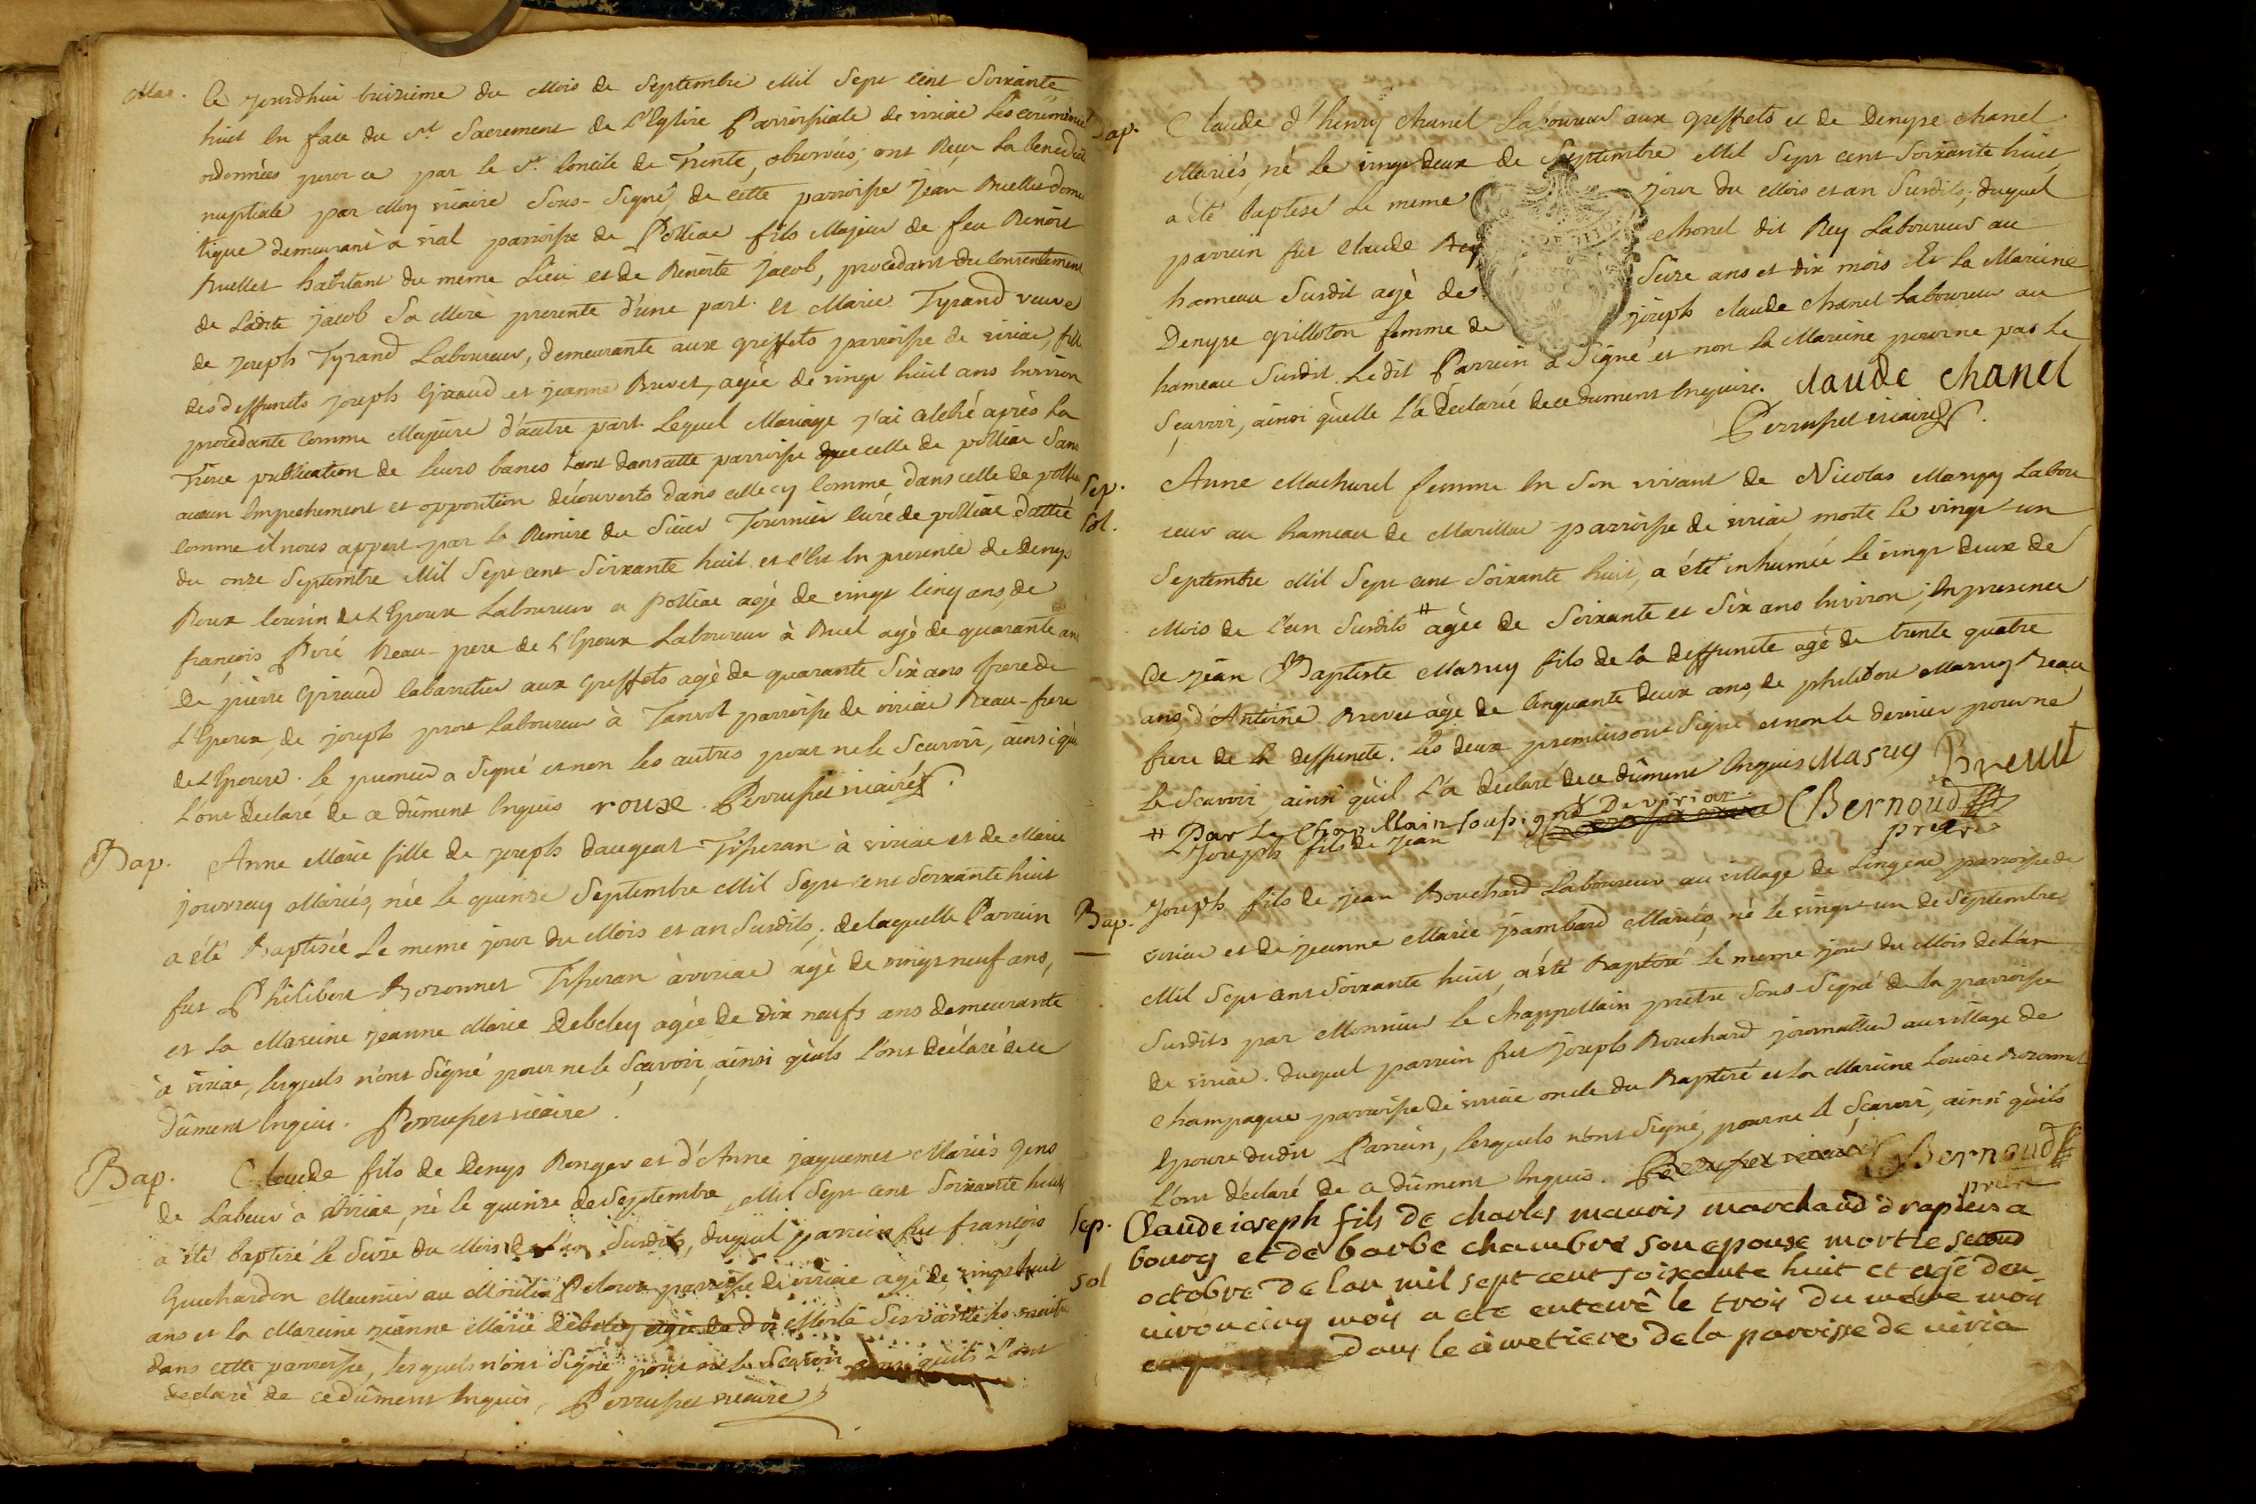 Mar. Ce jourdhui treizieme du Mois de Septembre Mil Sept Cent Soixante
huit En face du St Sacrement de L'Eglise Parroissiale de viriac Les ceremonies
ordonnées pour ce par le St Concile de Trente, observées; ont Reçu La benedict
nuptiale par Moy vicaire Sous-Signé, de cette parroisse jean Ruellet dome
tique demeurant à vial parroisse de Polliac fils Majeur de feu Benoit
Ruellet habitant du meme Lieu et de Benoite Jacob, procedant du consentement
de Ladite Jacob Sa Mere presente d'une part. et Marie Tyrand veuve
de joseph Tyrand Laboureur, demeurante aux greffets parroisse de viriac, fille
des deffuncts joseph Giraud et jeanne Brevet, agée de vingt huit ans Environ
procedante comme Majeure d'autre part. Lequel Mariage j'ai celebré après La
Trine publication de leurs bancs tant dans cette parroisse que celle de polliac Sans
aucun Empechement et opposition découverts dans celle cy comme dans celle de polliac
comme il nous appert par la Remise du Sieur Tournier Curé de polliac dattée
du onze Septembre Mil Sept cent Soixante huit. et c'Est En presence de Denys
Roux Cousin de L'Epoux Laboureur a polliac agé de vingt cinq ans, de
françois Piré Beau-pere de L'Epoux Laboureur à Buel agé de quarante ans
De pierre Giraud Cabarretier aux Greffets agé de quarante Six ans frere de
L'Epouse, de joseph prost Laboureur à Tanvol parroisse de viriac Beau-frere
de L'Epouse. le premier a Signé et non les autres pour ne le Scavoir, ainsi qu'ils
L'ont declaré de ce dûment Enquis roux. Perruset vicaire
Bap. Anne Marie fille de joseph daugeat Tisseran à viriac et de Marie
jouvray Mariés, née le quinze Septembre Mil Sept cent Soixante huit
a été Baptisée le meme jour du Mois et an Susdits; de laquelle Parrain
fut Philibert Bozonnet Tisseran à viriac agé de vingt neuf ans,
et la Mareine jeanne Marie Debeley agée de dix neufs ans demeurante
à viriac, lesquels n'ont Signé pour ne le Sçavoir, ainsi qu'ils l'ont déclaré de ce
dûment Enquis. Perruset vicaire
Bap. Claude fils de Denys Renger et d'Anne jaquemet Mariés Gens
de Labeur à viriac, né le quinze de Septembre Mil Sept cent Soixante huit
a été baptisé le Seize du Mois de l'an Susdits, duquel parrain fut françois
Guichardon Meunier au Moulin parroisse de viriac agé de vingt huit
ans et la Mareine jeanne Marie Debeley agée de dix
dans cette parroisse, lesquels n'ont Signé pour ne le Scavoir qu'ils l'ont
declaré de ce dûment Enquis, Perruset vicaire
Bap. Claude d'henry Chanel Laboureur aux greffets et de Denyse Chanel
Mariés, né le vingt deux de Septembre Mil Sept cent Soixante huit
a été baptisé le meme jour du Mois et an Susdits; duquel
parrain fut Claude Rey Chanel dit Rey Laboureur au
hameau Susdit agé de Seize ans et dix mois Et la Mareine
Denyse Grilloton femme de joseph Claude Chanel Laboureur au
hameau Susdit. Ledit Parrain a Signé et non la Mareine pour ne pas le
Sçavoir, ainsi qu'elle l'a déclarée de ce dument Enquise. Claude Chanel
Perruset vicaire
Sep. Anne Machurel femme En Son vivant de Nicolas Maruy Labou
Sol. reur au hameau de Marillac parroisse de viriac morte le vingt-un
Septembre Mil Sept cent Soixante huit, a été inhumée le vingt deux de
Mois de l'an Susdits # agée de Soixante et Six ans Environ; En presence
de jean Baptiste Masuy fils de la deffuncte agé de trente quatre
ans, d'Antoine Brevet agé de Cinquante deux ans, de Masuy Beau
frere de la deffuncte. les deux premiers ont Signé et non le dernier pour ne
le Scavoir ainsi qu'il l'a declaré de ce dûment Enquis Masuy Brevet
# Par Le Chapellain soussigné Bernoud
joseph fils de jean prêtre
Bap. Joseph fils de jean Bouchard Laboureur au village de Lingeac parroisse de
viriac et de jeanne Marie jambard Mariés, né le vingt-un de Septembre
Mil Sept cent Soixante huit, a été Baptisé le meme jour du Mois de l'an
Susdits par Monsieur le Chappellain prêtre Sous-Signé de la parroisse
de viriac. duquel parrain fut joseph Bouchard journallier au village de
Champagne parroisse de viriac oncle du Baptisé et la Mareine Louise Bozonnet
Epouse dudit Parrain, lesquels n'ont Signé, pour ne le Sçavoir, ainsi qu'ils
l'ont déclaré de ce dûment Enquis. Perruset vicaire Bernoud
prêtre
Sep. Claude ioseph fils de charles mauris marchand drapiers a
bourg et de barbe chambre son epouse mort le second
Sol octobre de lan mil sept cent soixante huit et agé den
viron cinq mois a ete enterré le trois du même mois
dans le cimetiere de la paroisse de viria